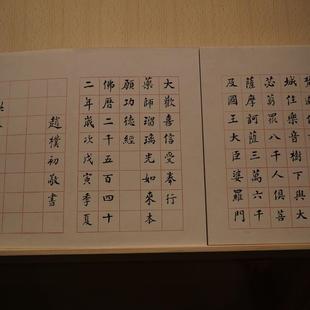 城住樂音樹下與大
苾芻眾八千人俱菩
薩摩訶薩三萬六千
及國王大臣婆羅門
大歡喜信受奉行
藥師瑠璃光如來本
願功德經
佛曆二千五百四十
二年歲次戊寅季夏
趙樸初敬書